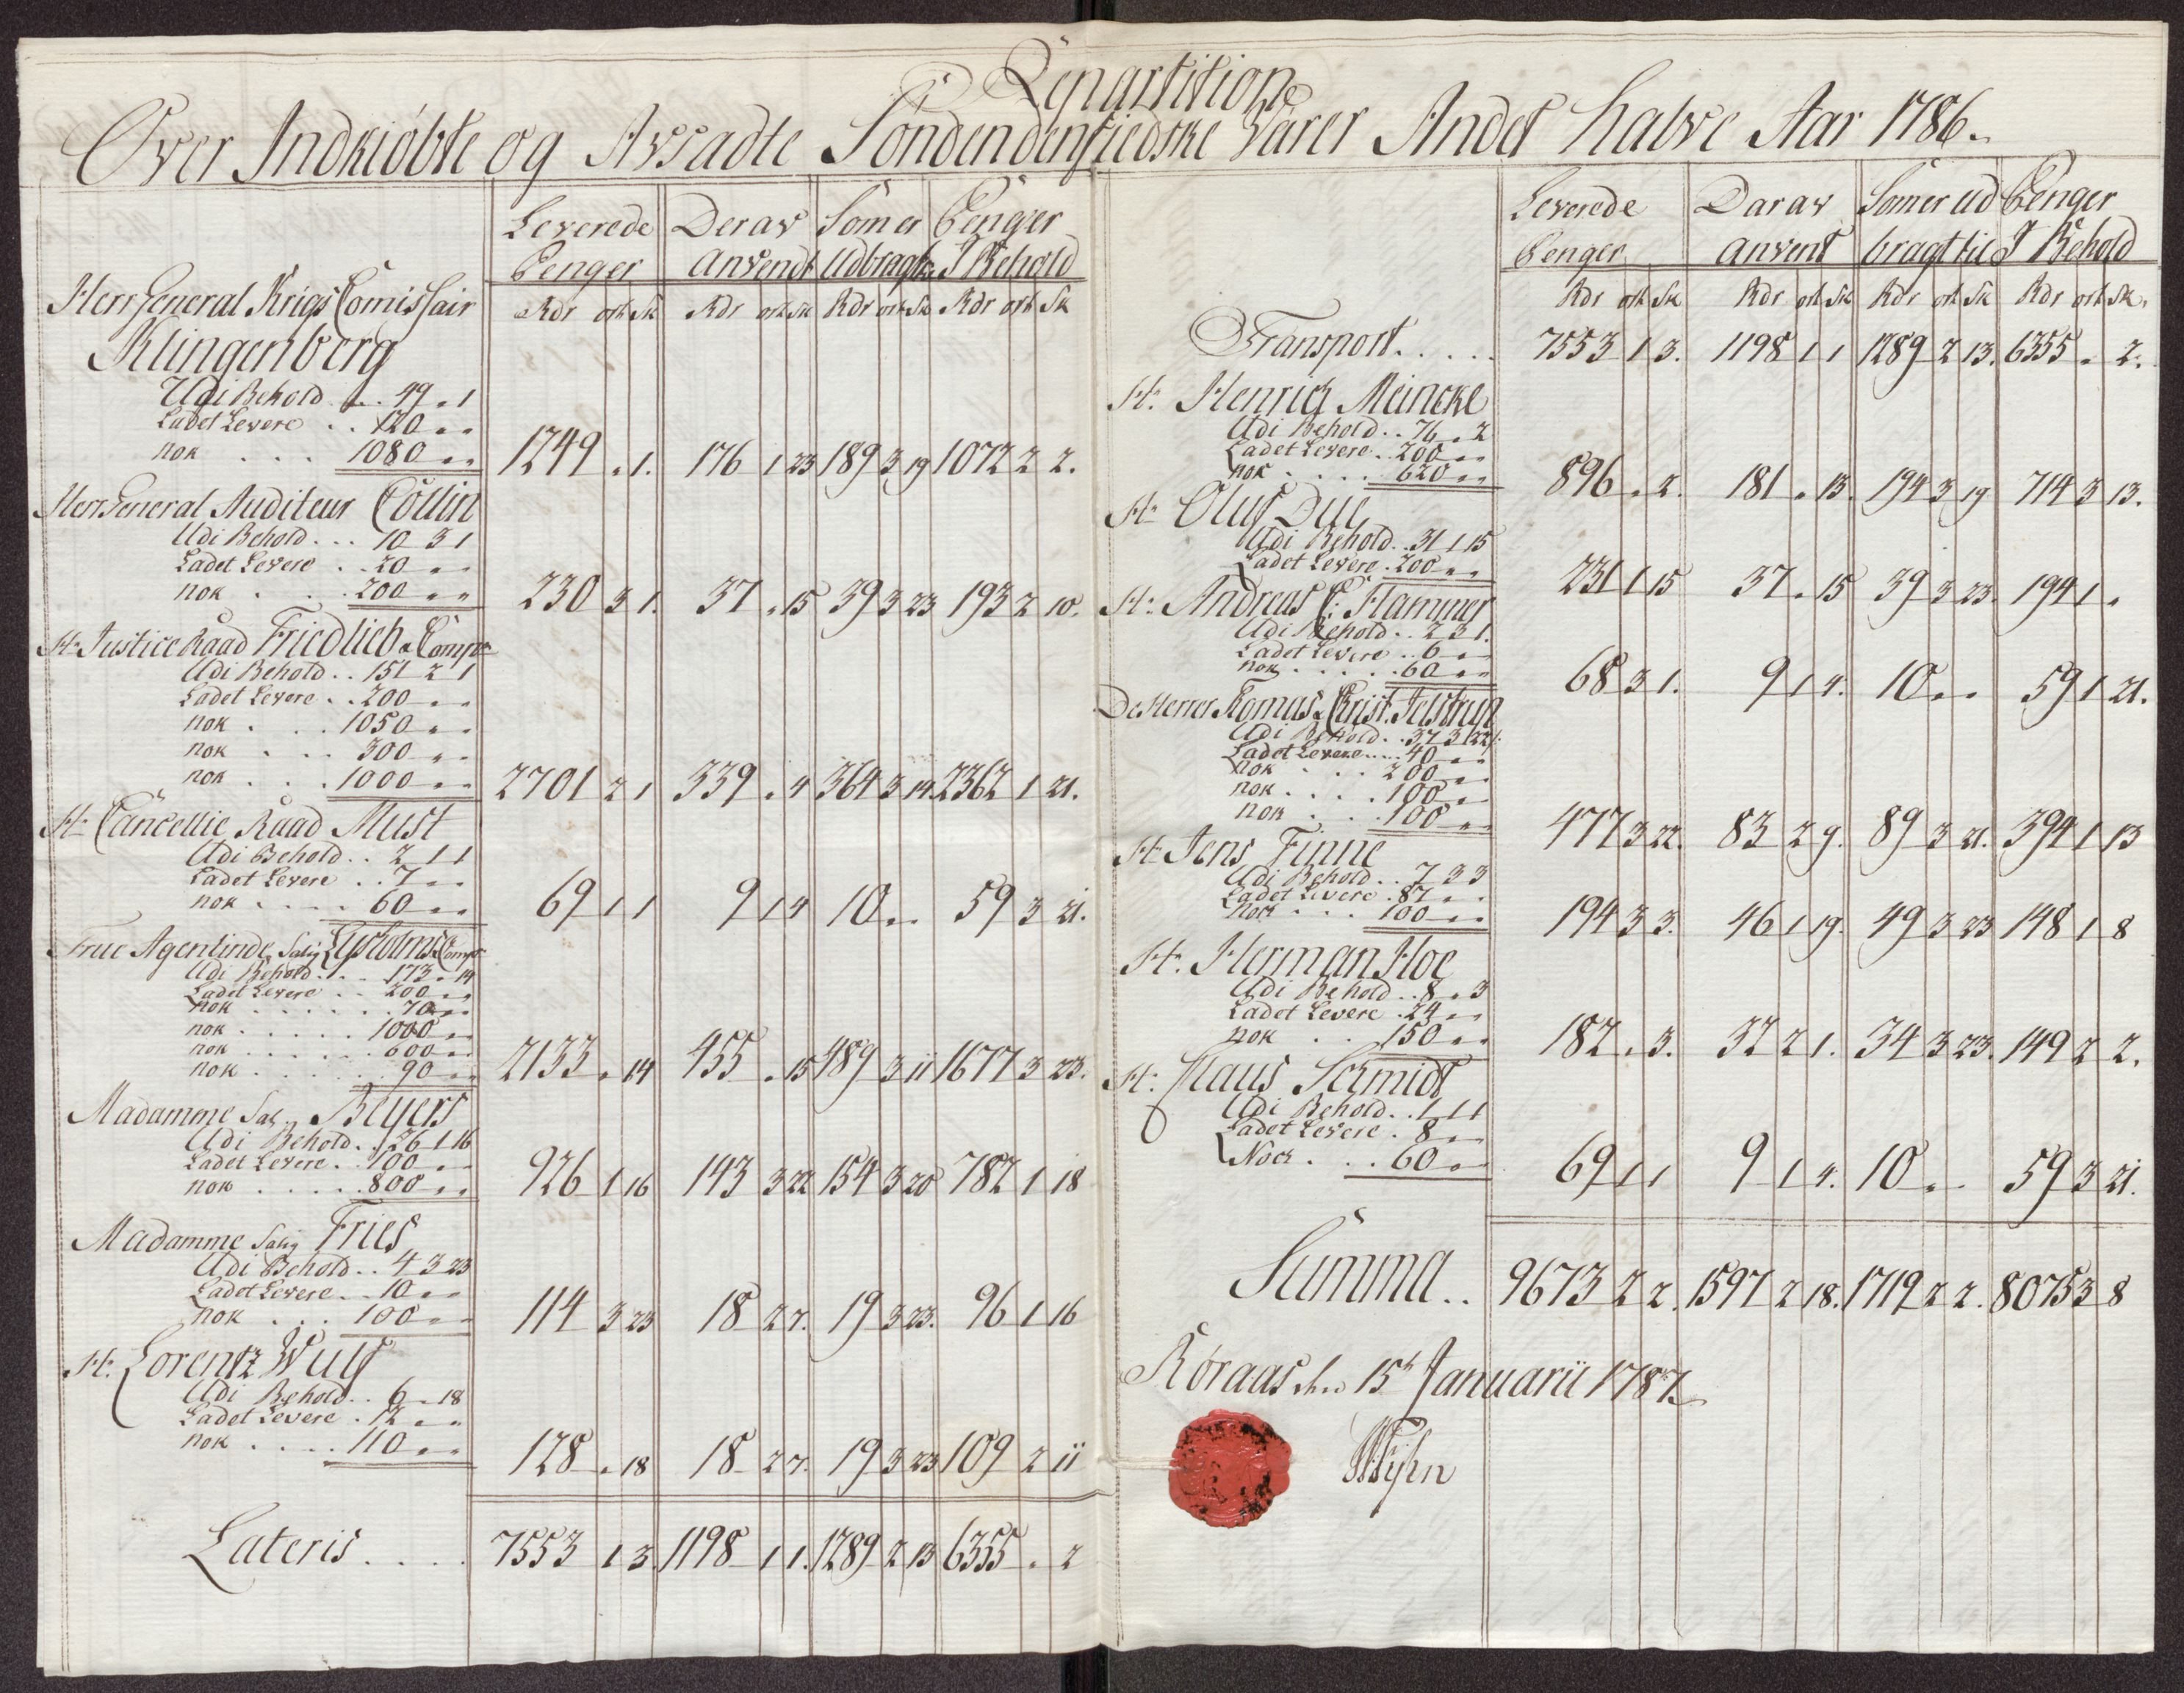 Repartition
Over Indkiøbte og Avsadte Søndendenfieldske Varer Andet halve Aar 1786.
Leverede Penger | Derav Anvendt | Som er Udbragt til | Penger I Behold
Rdr ort sk | Rdr ort sk | Rdr ort sk | Rdr ort sk
Herr General Krigs Comissair
Klingenberg
Udi Behold . . 49 . 1
Ladet Levere . . 120 . .
nok . . . 1080 . . | 1249 . 1. | 176 1 23 | 189 3 19 | 1072 2 2.
Herr General Auditeur Collin
Udi Behold . . . 10 3 1
Ladet Levere . . 20 . .
nok . . . 200 . . | 230 3 1. | 37 . 15 | 39 3 23 | 193 2 10.
Hr. Justice Raad Friedlieb & Comp
Udi Behold . . 151 2 1
Ladet Levere . . 200 . .
nok . . . 1050 . .
nok . . . 300 . .
nok . . . 1000 . . | 2701 2 1 | 339 . 4 | 364 3 14 | 2362 1 21.
Hr. Cancellie Raad Must
Udi Behold . . 2 1 1
Ladet Levere . . 7 . .
nok . . . . 60 . . | 69 1 1 | 9 1 4 | 10 . . | 59 3 21.
Frue Agentinde Salig Lysholms & Comp
Udi Behold . . . 173 . 14
Ladet Levere . . 200 . .
nok . . . . . 70 . .
nok . . . . . 1000 . .
nok . . . . . 600 . .
nok . . . . . 90 . . | 2133 . 14 | 455 . 15 | 489 3 11 | 1677 3 23.
Madamme Sal. Beyers
Udi Behold . . 26 1 16
Ladet Levere . . 100 . .
nok . . . . . 800 . . | 926 1 16 | 143 3 22 | 154 3 20 | 782 1 18
Madamme Salig Fries
Udi Behold . . 4 3 23
Ladet Levere . . 10 . .
nok . . . 100 . . | 114 3 23 | 18 2 7. | 19 3 23. | 96 1 16
Hr. Lorentz Wulf
Udi Behold . . 6 . 18
Ladet Levere . 12 . .
nok . . . . 110 . . | 128 . 18 | 18 2 7. | 19 3 23 | 109 2 11
Lateris . . . . | 7553 1 3. | 1198 1 1. | 1289 2 13 | 6355 . 2
Leverede Penger | Darav anvent | Som er ud bragt til | Penger I Behold
Rdr ort sk | Rdr ort sk | Rdr ort sk | Rdr ort sk.
Transport . . . . . | 7553 1 3. | 1198 1 1 | 1289 2 13. | 6355 . 2.
Hr. Henrich Meincke
Udi Behold . . 76 . 2
Ladet Levere . 200 . .
nok . . . . 620 . . | 896 . 2. | 181 . 13. | 194 3 19 | 714 3 13.
Hr. Oluf Due
Udi Behold . . 31 1 15
Ladet Levere . 200 . . | 231 1 15 | 37 . 15 | 39 3 23. | 194 1 .
Hr. Andreas C: Hammer
Udi Behold . . 2 3 1.
Ladet Levere . . 6 . .
nok . . . . . 60 . . | 68 3 1. | 9 1 4. | 10 . . | 59 1 21.
De Herrer Tomas & Christ. Jelstrup
Udi Behold . . 37 3 22
Ladet Levere . . . 40 . .
nok . . . . 200 . .
nok . . . . 100 . .
nok . . . 100 . . | 477 3 22. | 83 2 9. | 89 3 21. | 394 1 13
Hr. Jens Finne
Udi Behold . . 7 3 3
Ladet Levere . 87 . .
nock . . . 100 . . | 194 3 3. | 46 1 19. | 49 3 23 | 148 1 8
Hr. Herman Hoe
Udi Behold . . 8 . 3
Ladet Levere . 24 . .
nok . . 150 . . | 182 . 3. | 32 2 1. | 34 3 23. | 149 2 2.
Hr. Claus Schmidt
Udi Behold . . 1 1 1
Ladet Levere . 8 . .
Nock . . . 60 . . | 69 1 1 | 9 1 4. | 10 . . | 59 3 21.
Summa . . | 9673 2 2. | 1597 2 18. | 1719 2 2. | 8075 3 8
Røraas den 15de Januarii 1787.